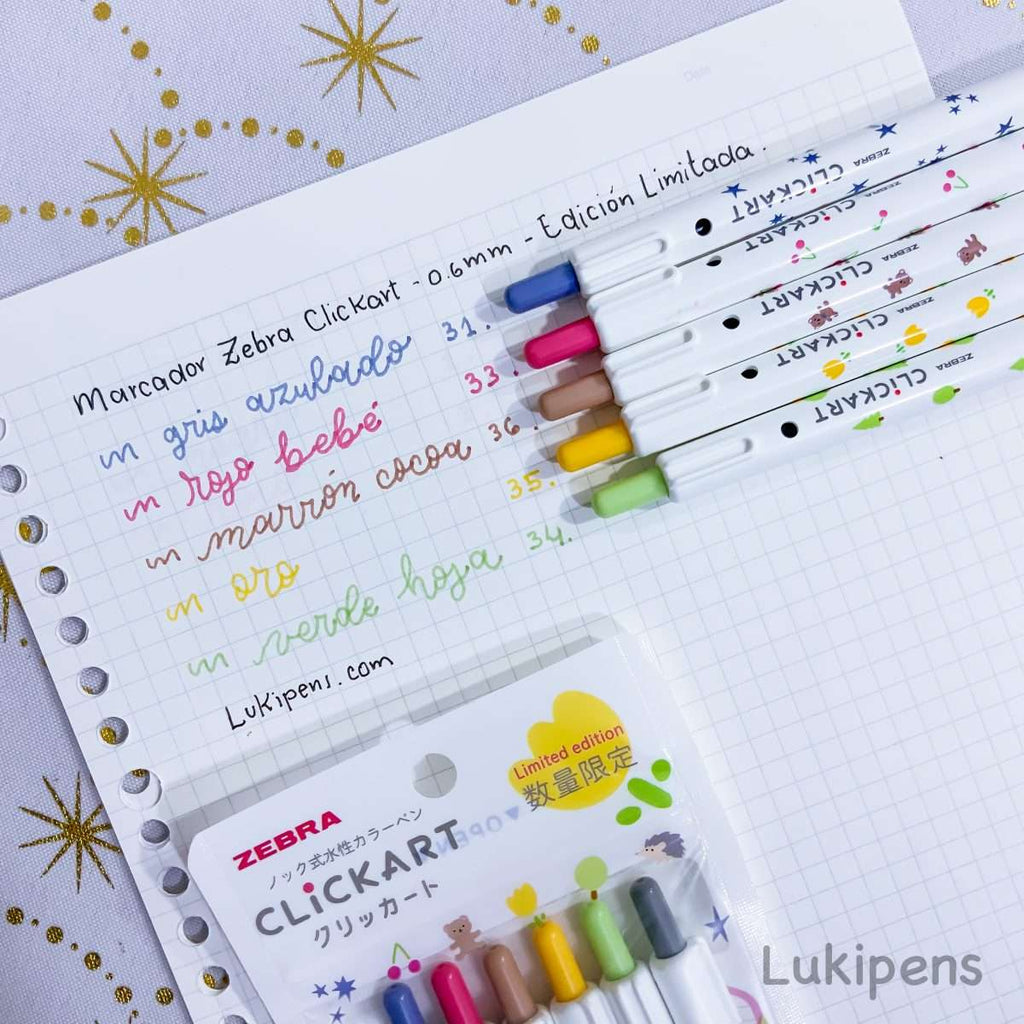 Date
Marcador Zebra Clickart - 0.6mm - Edición Limitada.
gris azulado 31.
rojo bebé 33.
marrón cocoa 36.
oro 35.
verde hoja 34.
Lukipens.com
CLiCKART ZEBRA
CLiCKART ZEBRA
CLiCKART ZEBRA
CLiCKART ZEBRA
CLiCKART ZEBRA
Limited edition
数量限定
ZEBRA
ノック式水性カラーペン
▼OPEN
CLiCKART
クリッカート
Lukipens